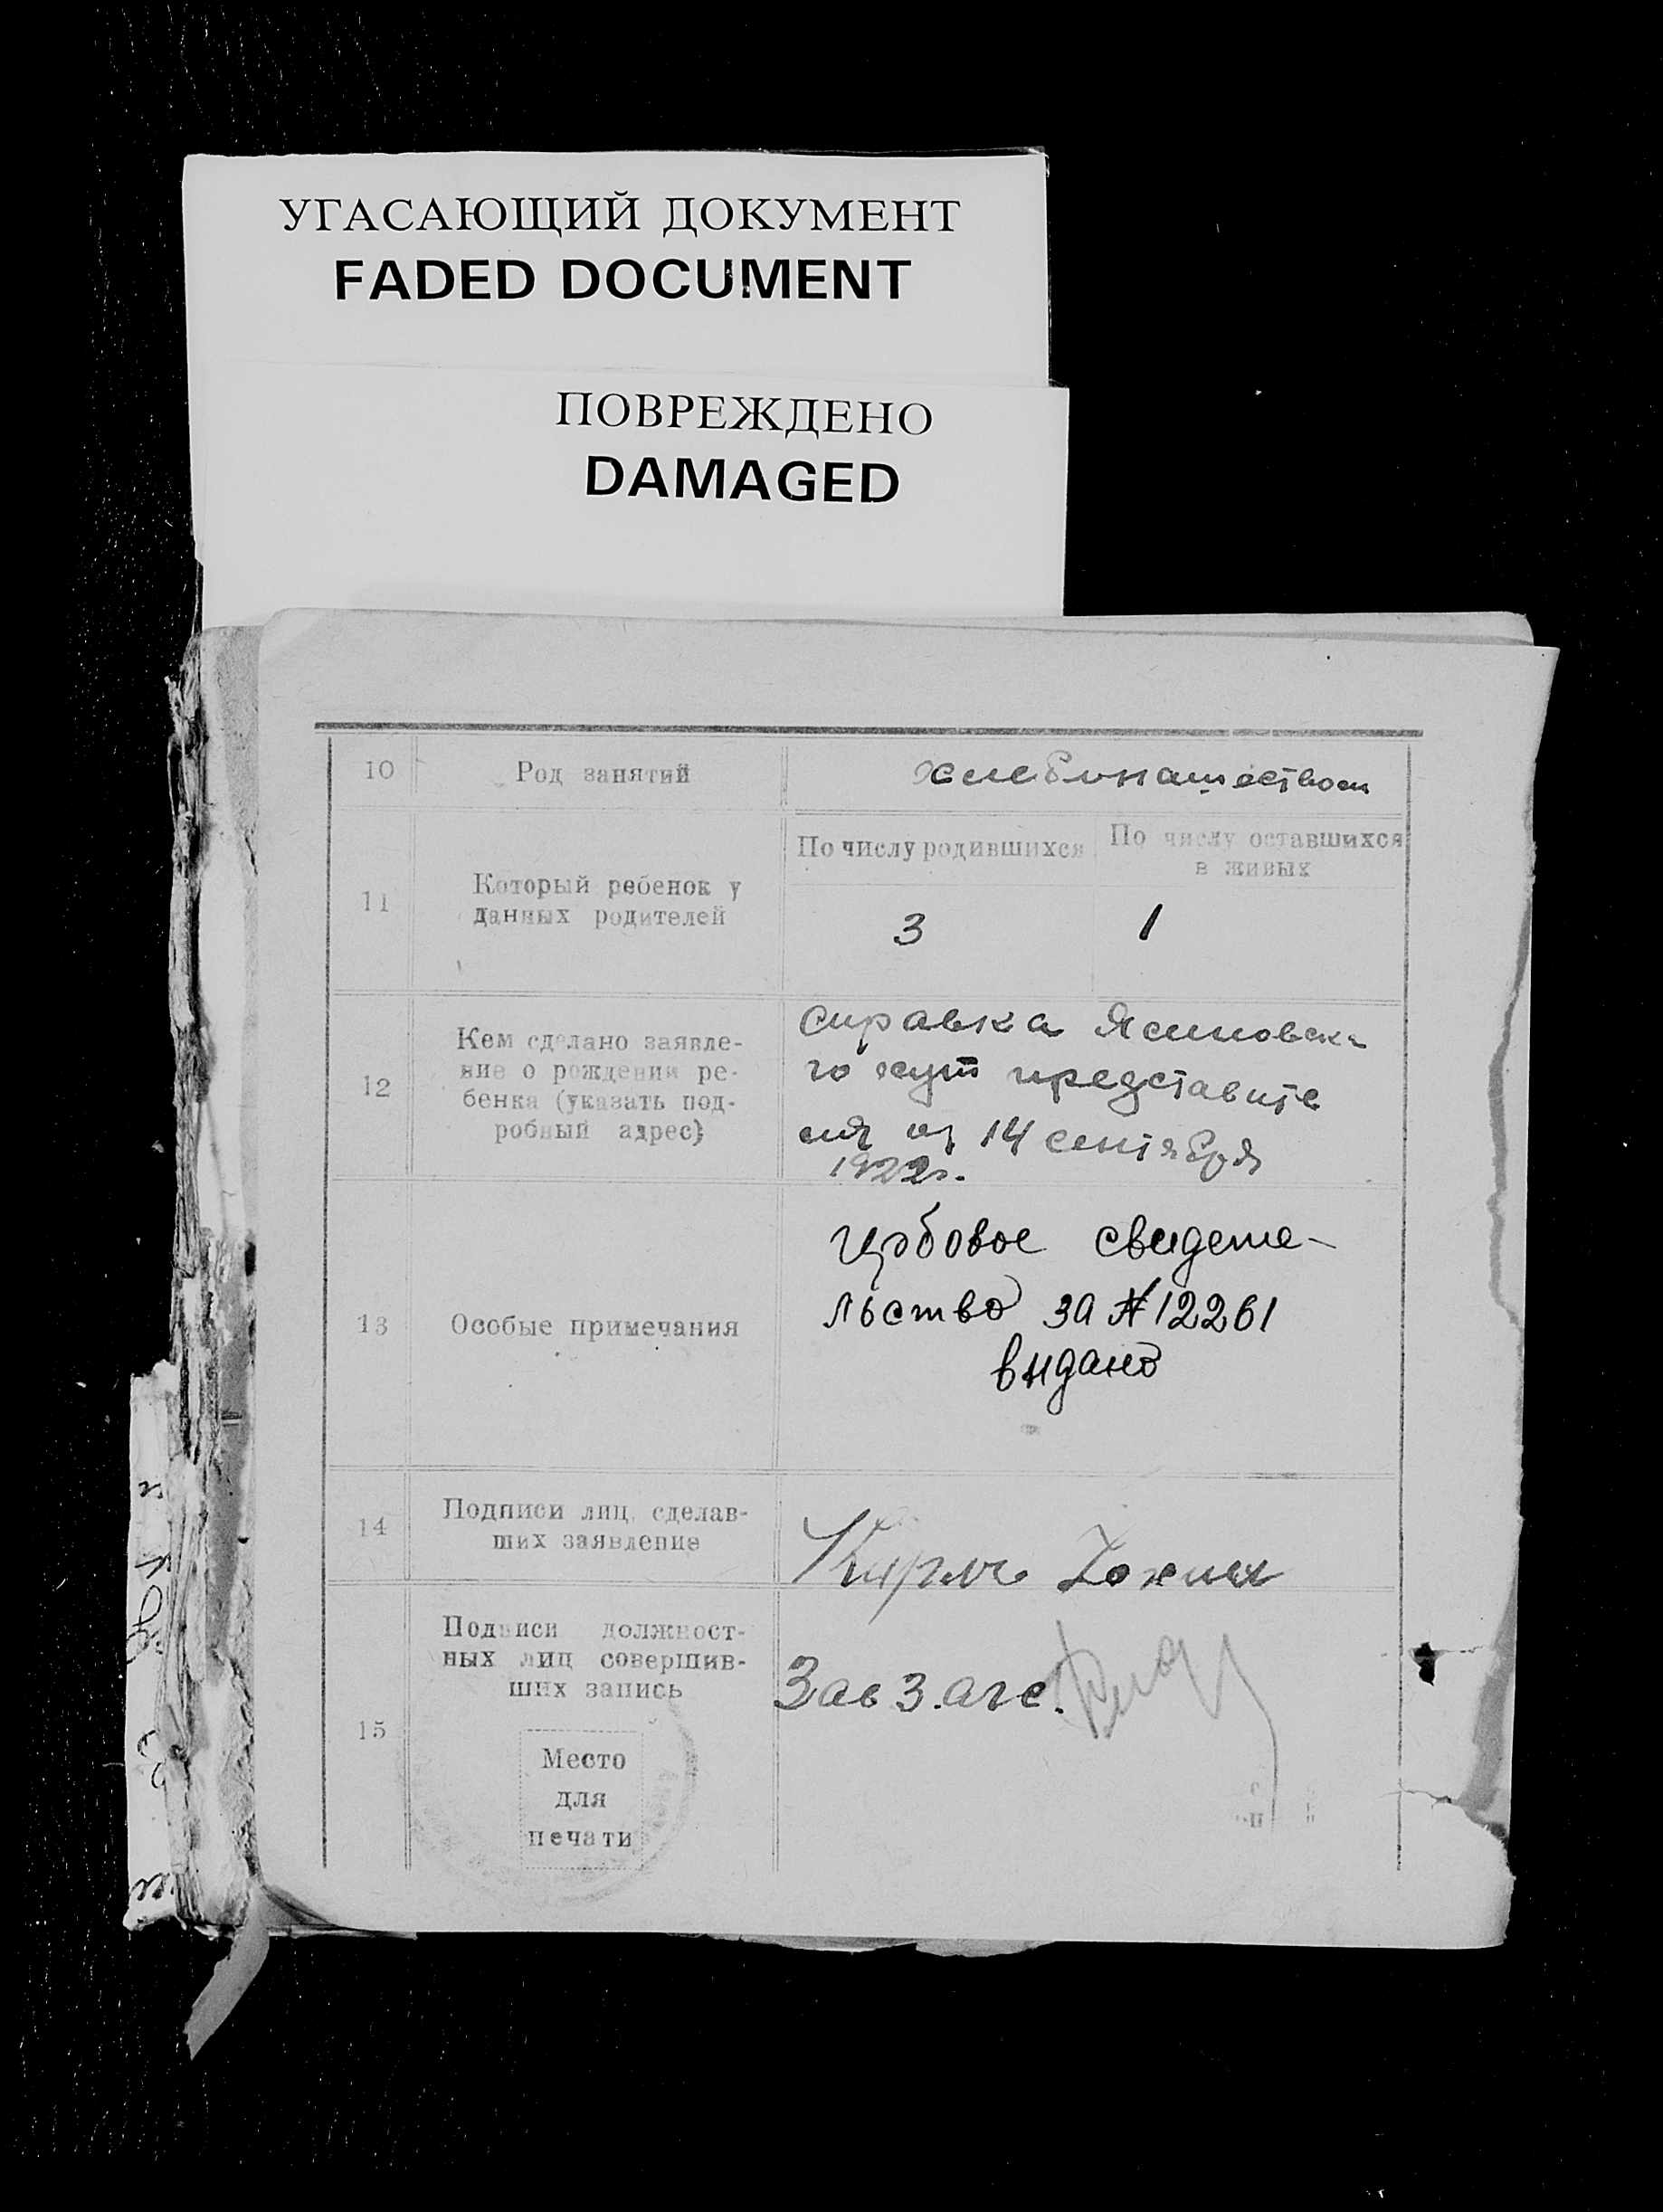 УГАСАЮЩИЙ ДОКУМЕНТ
FADED DOCUMENT
ПОВРЕЖДЕНО
DAMAGED
10 Род занятий хлебопашеством
11 Который ребенок у
данных родителей
По числу родившихся
По числу оставшихся
в живых
3 1
12 Кем сделано заявле-
ние о рождении ре-
бенка (указать под-
робный адрес)
справка Ясиновска
го хут представите
ля от 14 сентября
1922г.
13 Особые примечания
гербовое свидете-
льство за № 12261
выдано
14 Подписи лиц, сделав-
ших заявление
15 Подписи должност-
ных лиц совершив-
ших запись
Зав Загс.
Место
для
печати